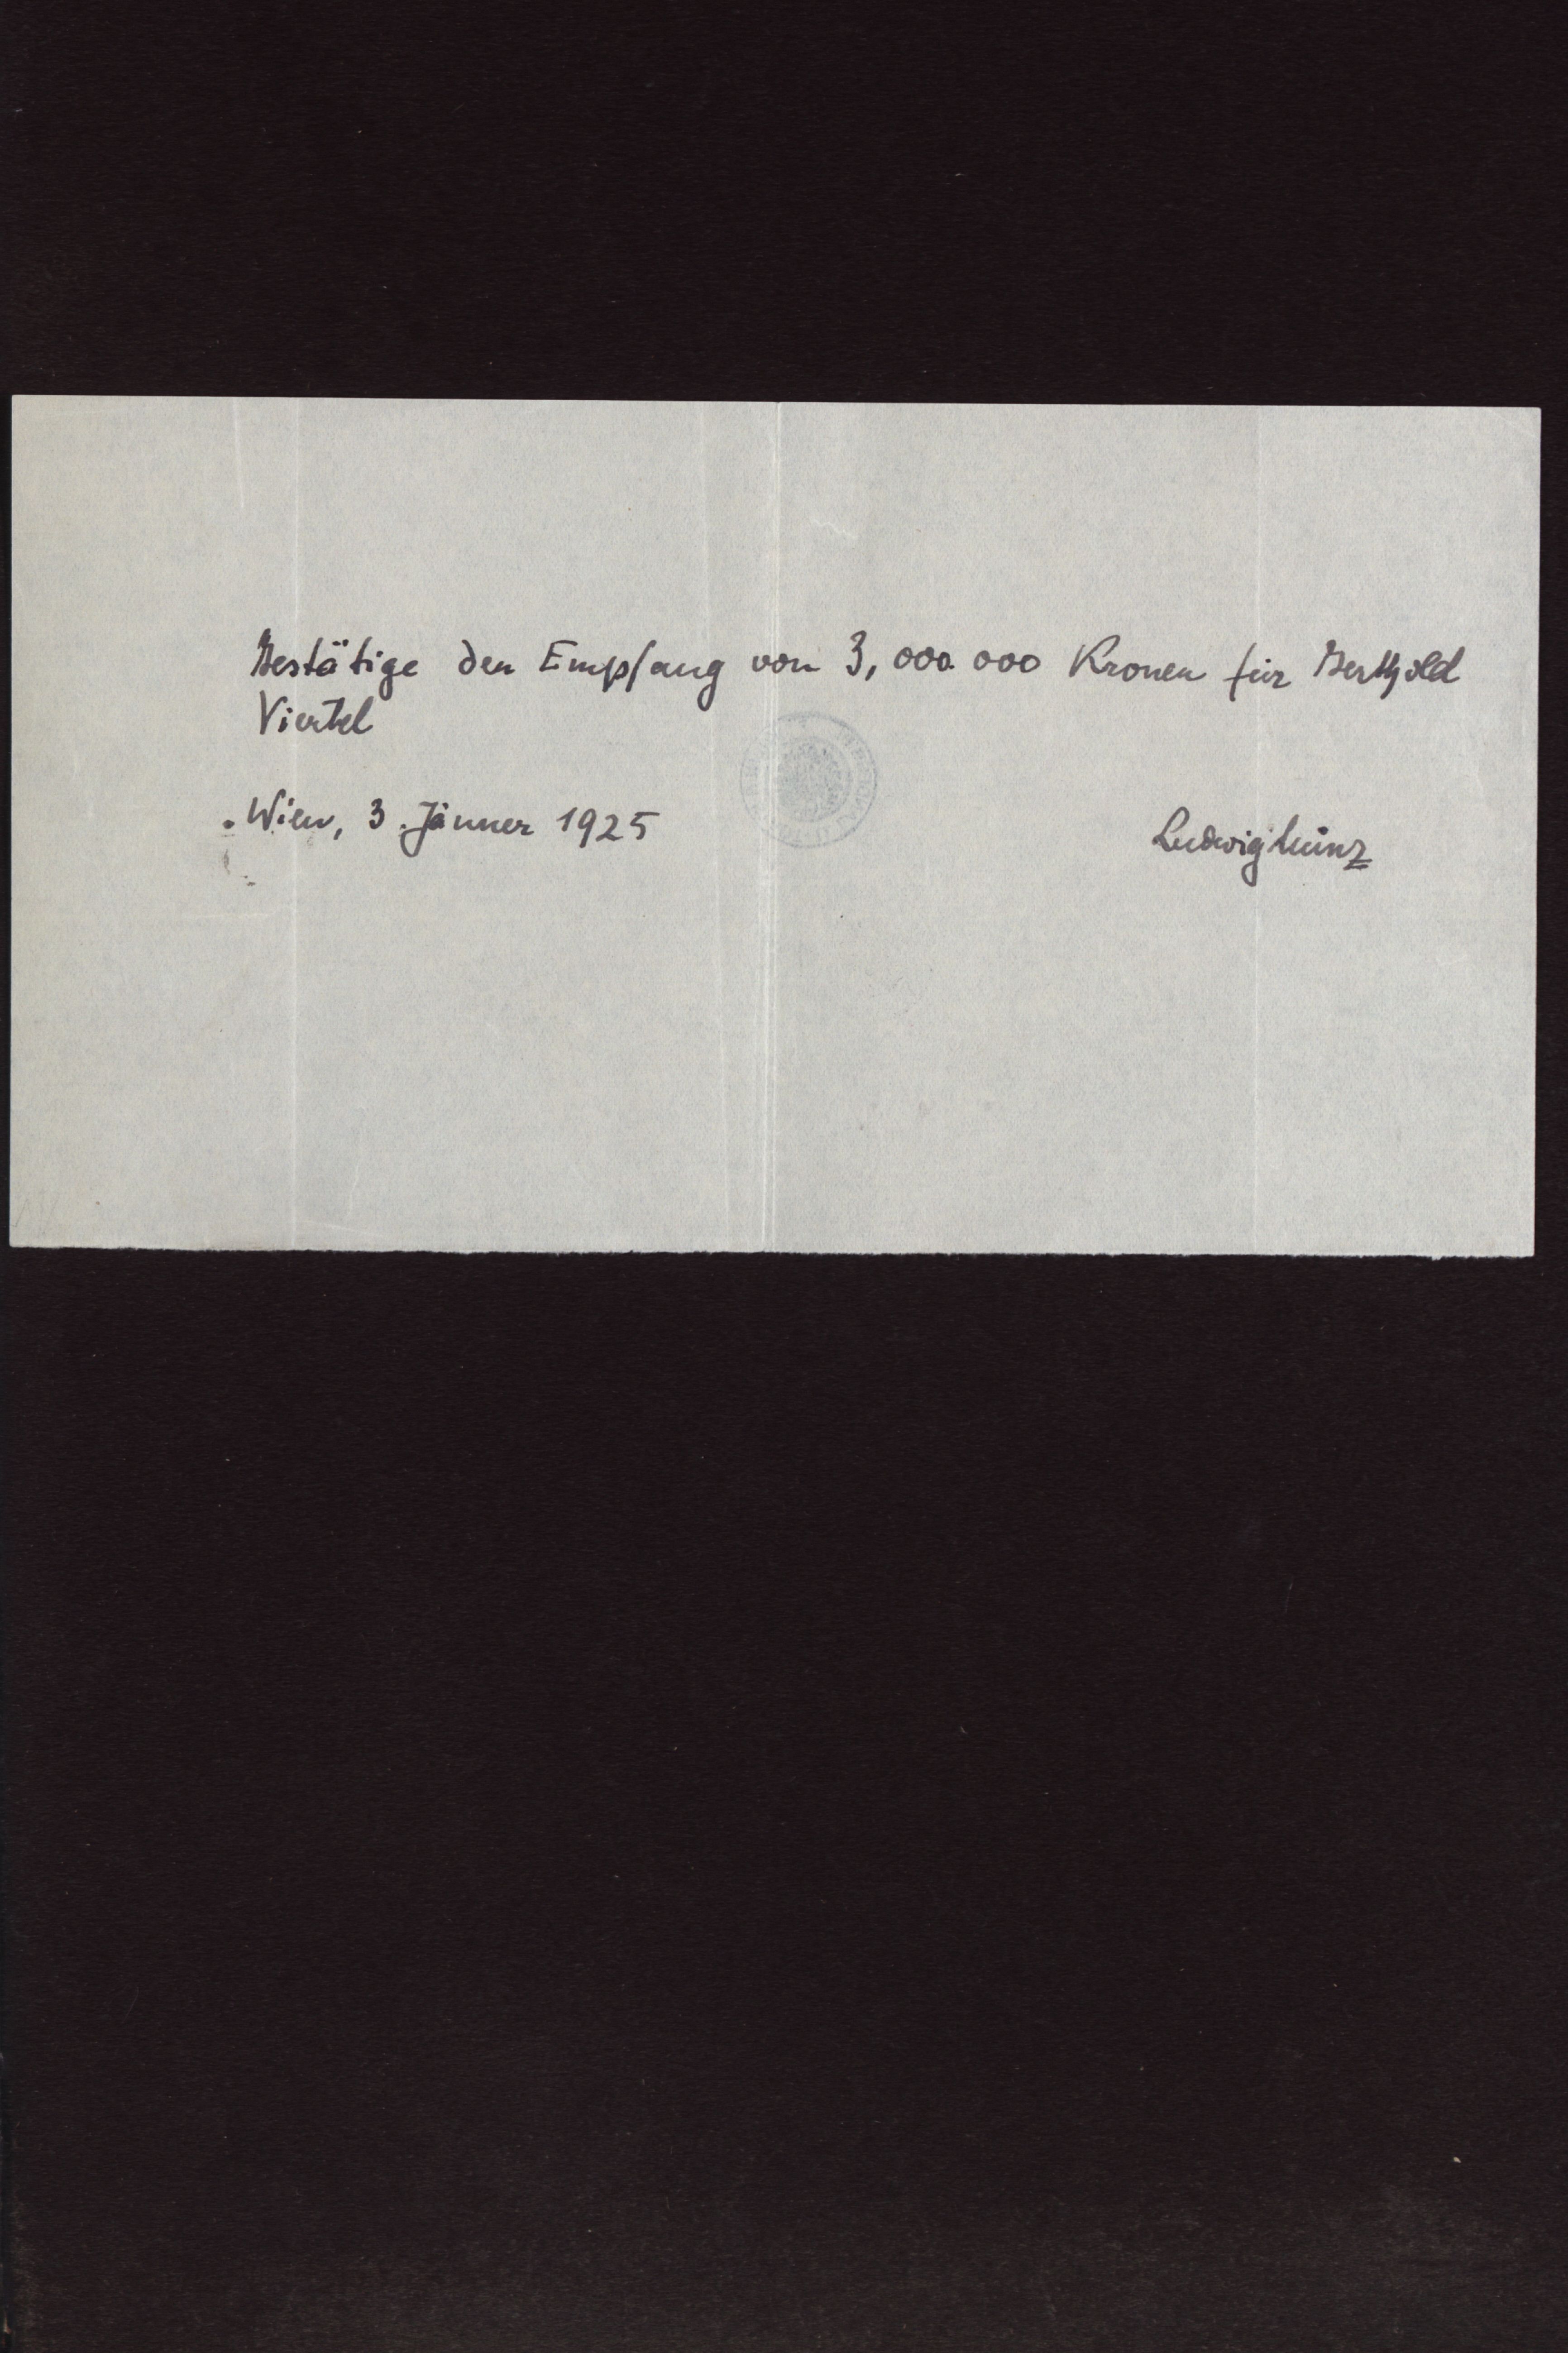 Bestätige den Empfang von 3,000.000 Kronen für Berthold
Viertel
Wien, 3. Jänner 1925
Ludwig Münz